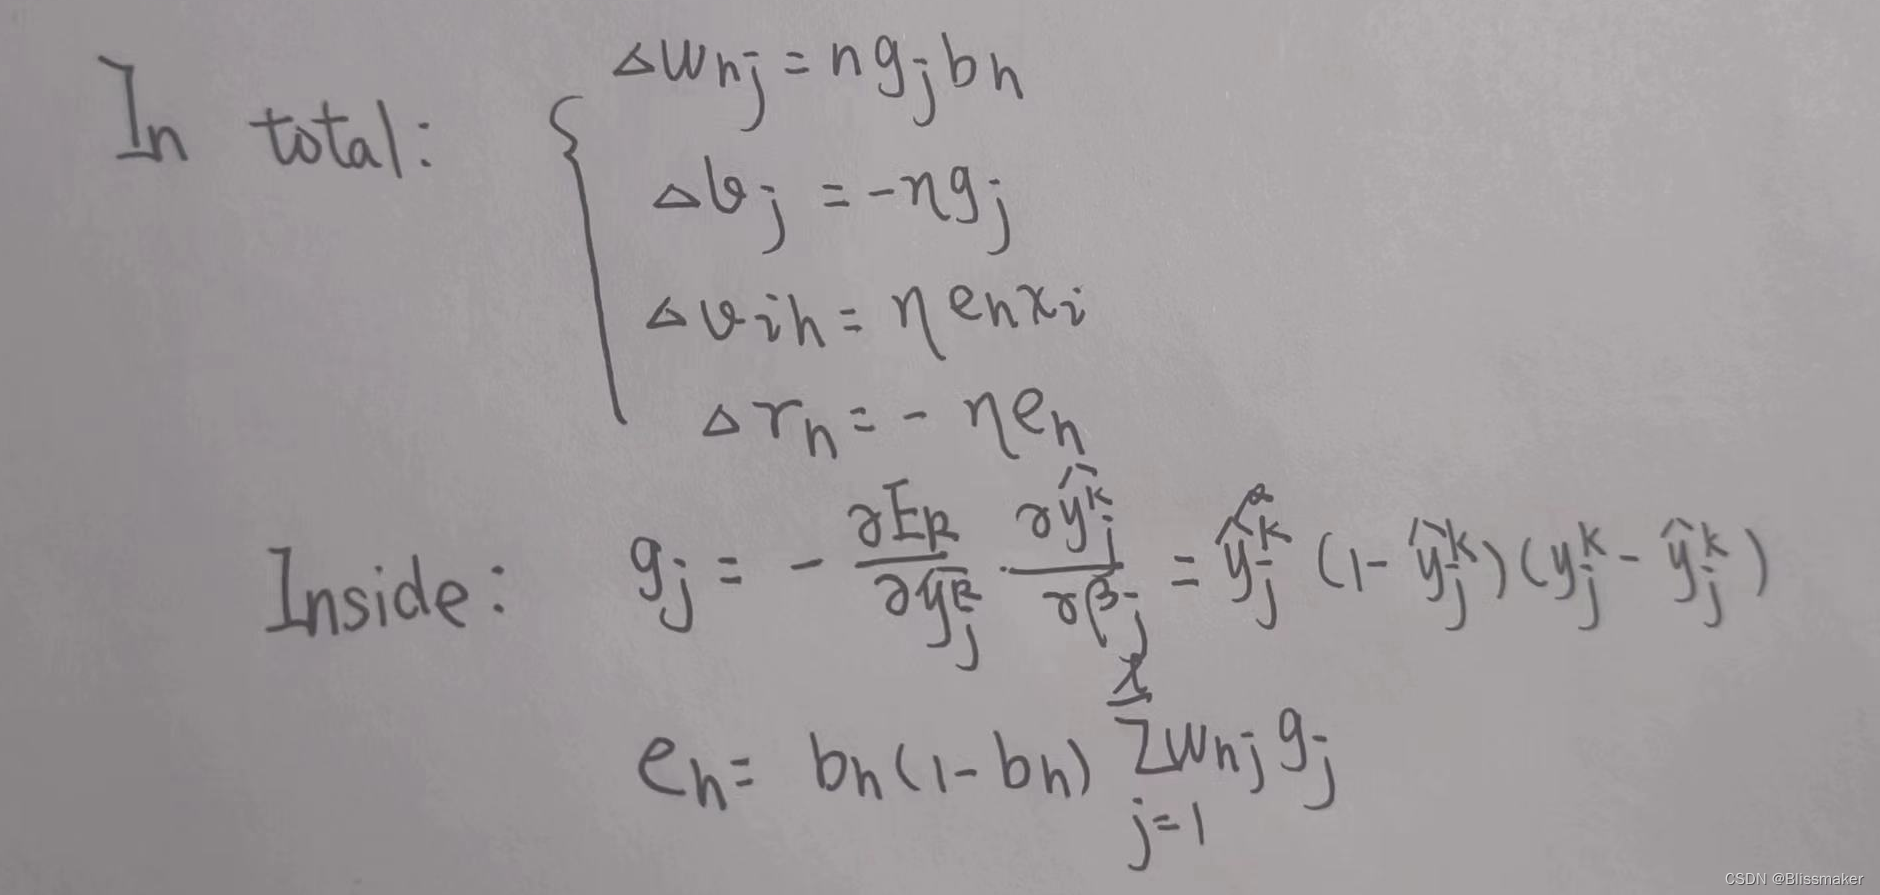 In total:
△w_{hj} = ηg_j b_h
△θ_j = -ηg_j
△v_{ih} = ηe_h x_i
△r_h = -ηe_h
Inside: g_j = - ∂E_k/∂ŷ_j^k · ∂ŷ_j^k/∂β_j = ŷ_j^k (1-ŷ_j^k)(y_j^k - ŷ_j^k)
e_h = b_h(1-b_h) Σ_{j=1}^{l} w_{hj} g_j
CSDN @Blissmaker